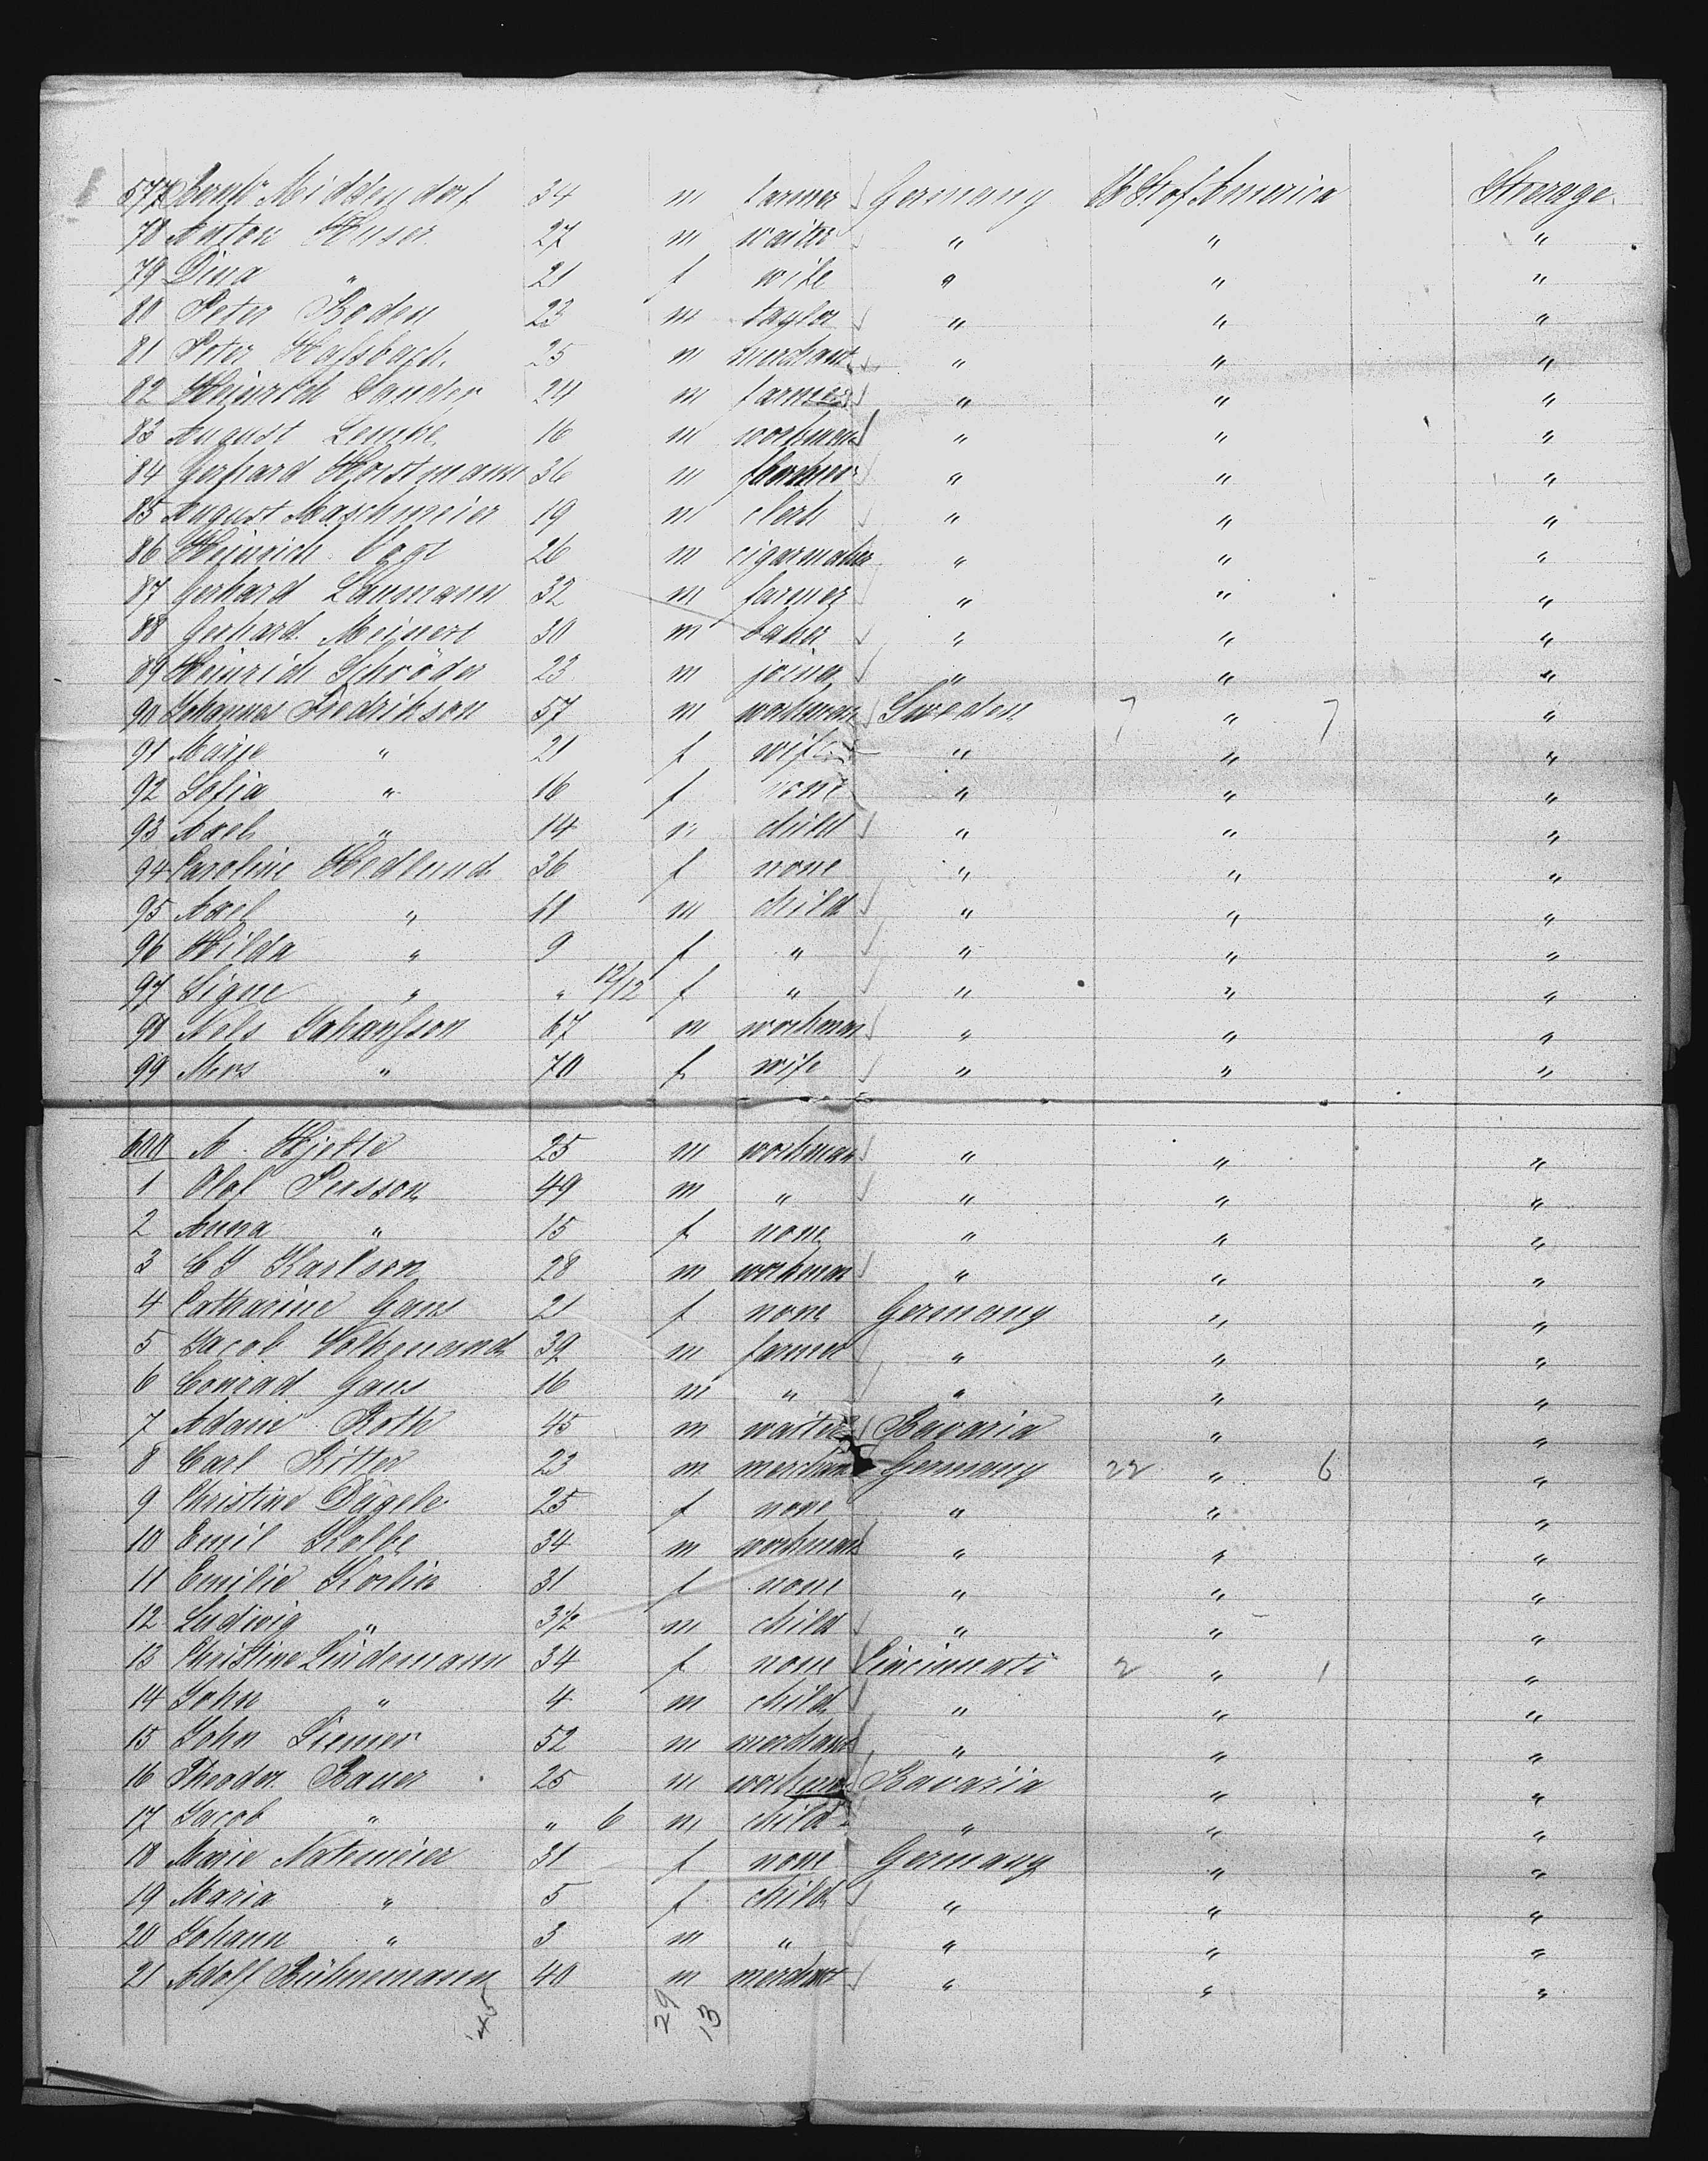 577 Bernh Middendorf 34 m farmer Germany U St of America Steerage
78 Anton Huser 27 m waiter " " "
79 Dina " 21 f wife " " "
80 Peter Boden 23 m taylor " " "
81 Peter 25 m merchant " " "
82 Heinrich Sander 24 m farmer " " "
83 August Lemke 16 m workman " " "
84 Gerhard Horstmann 36 m farmer " " "
85 August Maschmeier 19 m clerk " " "
86 Heinrich Vogt 26 m cigarmaker " " "
87 Gerhard Laumann 32 m farmer " " "
88 Gerhard Meinert 30 m baker " " "
89 Heinrich Schröder 23 m joiner " " "
90 Johannes Fredrikson 57 m workman Sweden 7 " 7 "
91 Marje " 21 f wife " " "
92 Sofia " 16 f none " " "
93 Axel " 14 m child " " "
94 Caroline Hedlund 36 f none " " "
95 Axel " 11 m child " " "
96 Hilda " 9 f " " " "
97 Signe " " 12/12 f " " " "
98 Nels Johansson 67 m workman " " "
99 Mrs " 70 f wife " " "
600 A. Hjelte 25 m workman " " "
1 Olof Persson 49 m " " " "
2 Anna " 15 f none " " "
3 C J Karlson 28 m workman " " "
4 Catharine Gans 21 f none Germany " "
5 Jacob 39 m farmer " " "
6 Conrad Gans 16 m " " " "
7 Adam Roth 45 m waiter Bavaria " "
8 Carl Ritter 23 m merchant Germany 22 " 6 "
9 Christine Dägele 25 f none " " "
10 Emil Kolbe 34 m workman " " "
11 Emilie Koslin 31 f none " " "
12 Ludwig " 3 1/2 m child " " "
13 Christine Lindemann 34 f none Cincinnati 2 " 1 "
14 John " 4 m child " " "
15 John Siemer 52 m merchant " " "
16 Theodor Bauer 25 m workman Bavaria " "
17 Jacob " " 6 m child " " "
18 Marie Notemeier 31 f none Germany " "
19 Maria " 5 f child " " "
20 Johann " 3 m " " " "
21 Adolf Bühnemann 40 m merchant " " "
45 29 13